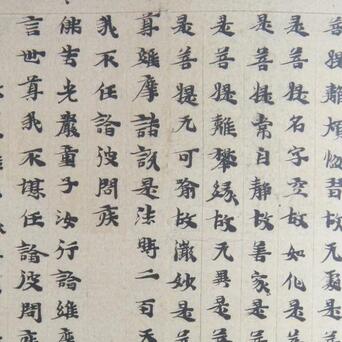 菩提離煩惱習故无處是
是菩提名字空故如化是
是菩提常自靜故善寂是
是菩提離攀緣故无異是菩
是菩提无可喻故微妙是菩
尊維摩詰說是法時二百天
我不任詣彼問疾
佛告光嚴童子汝行詣維摩
言世尊我不堪任詣彼問疾